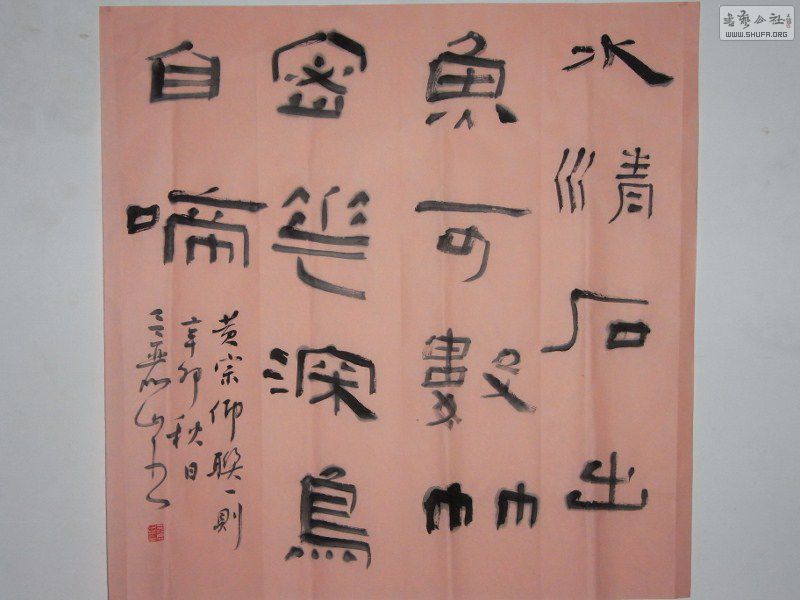 水清石出
魚可數竹
密花深鳥
自啼
黄宗仰聯一則
辛卯秋日
书藝公社
WWW.SHUFA.ORG